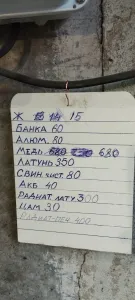 Ж 15
БАНКА 60
АЛЮМ. 80
МЕДЬ 680
ЛАТУНЬ 350
СВИН. ЧИСТ. 80
АКБ. 40
РАДИАТ ЛАТУ. 300
ЦАМ 30